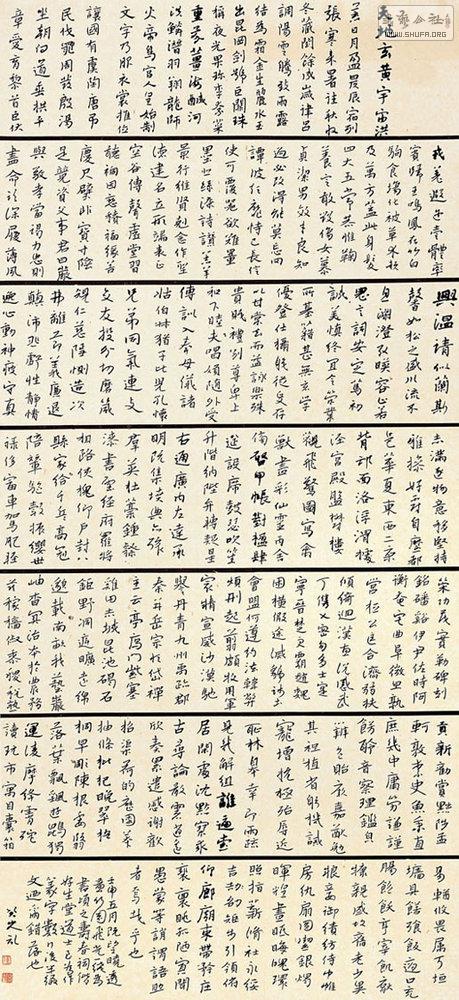 天地玄黃宇宙洪
荒日月盈昃辰宿列
張寒來暑往秋收
冬藏閏餘成歲律呂
調陽雲騰致雨露
結為霜金生麗水玉
出崑岡劍號巨闕珠
稱夜光果珍李柰菜
重芥薑海鹹河
淡鱗潛羽翔龍師
火帝鳥官人皇始制
文字乃服衣裳推位
讓國有虞陶唐弔
民伐罪周發殷湯
坐朝問道垂拱平
章愛育黎首臣伏
戎羌遐邇壹體率
賓歸王鳴鳳在竹白
駒食場化被草木賴
及萬方蓋此身髮
四大五常恭惟鞠
養豈敢毀傷女慕
貞潔男效才良知
過必改得能莫忘罔
談彼短靡恃己長信
使可覆器欲難量
墨悲絲染詩讚羔羊
景行維賢剋念作聖
德建名立形端表正
空谷傳聲虛堂習
聽禍因惡積福緣善
慶尺璧非寶寸陰
是競資父事君曰嚴
與敬孝當竭力忠則
盡命臨深履薄夙
興溫凊似蘭斯
馨如松之盛川流不
息淵澄取映容止若
思言辭安定篤初
誠美慎終宜令榮業
所基籍甚無竟學
優登仕攝職從政存
以甘棠去而益詠樂殊
貴賤禮別尊卑上
和下睦夫唱婦隨外受
傅訓入奉母儀諸
姑伯叔猶子比兒孔懷
兄弟同氣連枝
交友投分切磨箴
規仁慈隱惻造次
弗離節義廉退
顛沛匪虧性靜情
逸心動神疲守真
志滿逐物意移堅持
雅操好爵自縻都
邑華夏東西二京
背邙面洛浮渭據
涇宮殿盤鬱樓
觀飛驚圖寫禽
獸畫彩仙靈丙舍
傍啟甲帳對楹肆
筵設席鼓瑟吹笙
升階納陛弁轉疑星
右通廣內左達承
明既集墳典亦聚
群英杜稾鍾隸
漆書壁經府羅將
相路俠槐卿戶封八
縣家給千兵高冠
陪輦驅轂振纓世
祿侈富車駕肥輕
策功茂實勒碑刻
銘磻溪伊尹佐時阿
衡奄宅曲阜微旦孰
營桓公匡合濟弱扶
傾綺迴漢惠說感武
丁俊乂密勿多士寔
寧晉楚更霸趙魏
困橫假途滅虢踐土
會盟何遵約法韓弊
煩刑起翦頗牧用軍
最精宣威沙漠馳
譽丹青九州禹跡百郡
秦并嶽宗恆岱禪
主云亭鴈門紫塞
雞田赤城昆池碣石
鉅野洞庭曠遠綿
載南畝我藝黍
岫杳冥治本於農務
茲稼穡
貢新勸賞黜陟孟
軻敦素史魚秉直
庶幾中庸勞謙謹
敕聆音察理鑑貌
辨色貽厥嘉猷勉
其祗植省躬譏誡
寵增抗極殆辱近
恥林皋幸即兩疏
見機解組誰逼索
居閑處沉默寂寥求
古尋論散慮逍遙
欣奏累遣慼謝歡
招渠荷的歷園莽
抽條枇杷晚翠梧
桐早凋陳根委翳
落葉飄颻遊鵾獨
運凌摩絳霄耽
讀玩市寓目囊箱
易輶攸畏屬耳垣
牆具膳飡飯適口充
腸飽飫烹宰飢厭
糟糠親戚故舊老少異
糧妾御績紡侍巾帷
房紈扇圓潔銀燭
煒煌晝眠晦魄環
照指薪修祜永綏
吉劭矩步引領俯
仰廊廟束帶矜莊
徘徊瞻眺孤陋寡聞
愚蒙等誚謂語助
者焉哉乎也
書法公社
WWW.SHUFA.ORG